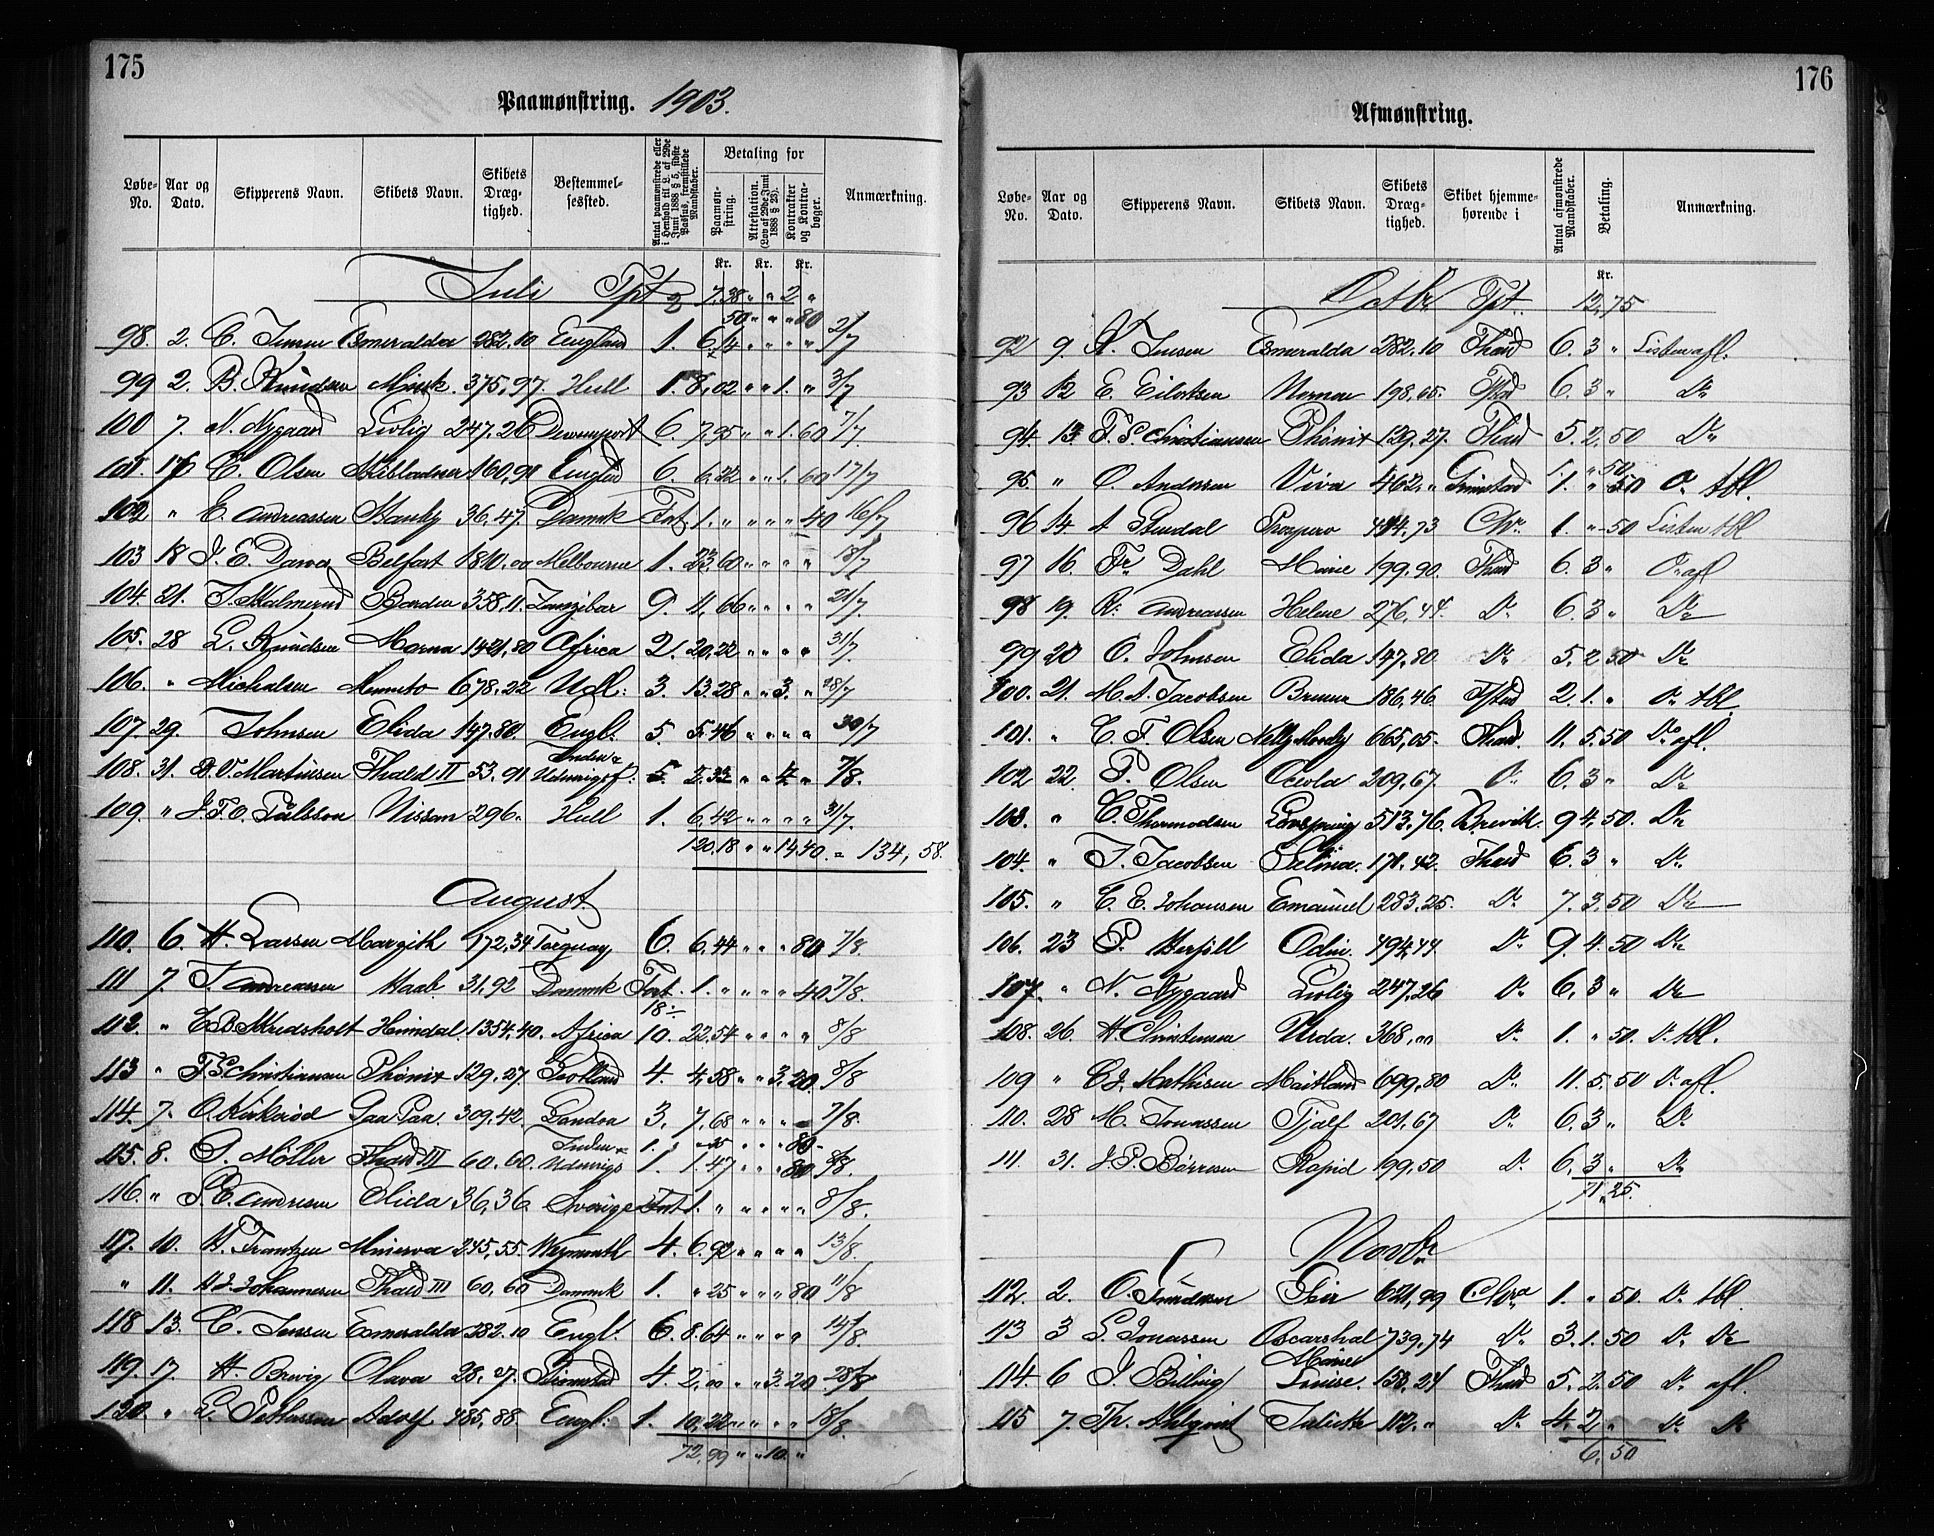 175
Paamønstring. 1903.
Løbe-No. Aar og Dato. Skipperens Navn. Skibets Navn. Skibets Dræg-tighed. Bestemmel-sessted. Antal paamønstrede eller i Henhold til L. af 29de Juni 1888 § 5, sidste Passus, fremstillede Mandskaber. Betaling for Paamøn-string. Attestation. (Lov af 29de Juni 1888 § 23). Kontrakter og Kontra-bøger. Anmærkning.
Kr. Kr. Kr.
Juli Tpt 2 7,38 " " 2 "
50 " " " 80
98. 2. C. Jensen Esmeralda 282.10 England 1. 6,14 " " " " 2/7
99 2. B. Knudsen Minsk 375,97. Hull 1. 8,02 " " 1. " 3/7
100 7. N. Nygaard Livlig 247.26 Devenport 6. 7,95 " " 1.60 7/7
101. 16 C. Olsen 160,91 England 6. 6,22 " " 1,60 17/7
102 " E. Andreassen 36.47. Danmk Fort. 1. " " " " 40 16/7
103 18 J. E. Dawa Belfast 1810.00 Melbourne 1. 23,60 " " " " 18/7
104. 21. J. Malmerud Barden 358.11. Zanzibar 9. 11,66 " " " " 21/7
105. 28 L. Knudsen Morna 1421,80 Africa 2. 20,22 " " " " 31/7.
106. " Michalsen 678,22 Udl: 3. 13.28 " " 3. " 28/7
107. 29. Johnsen Elida 147.80. Engl. 5. 5.46 " " " " 30/7
108. 31. A. V. Martinsen Thald II 53.91 Inden & Udenrigsf: 5. 2.32 " " 4 " 7/8.
109. " J. F. O. Pålsson Nissan 296. Hull 1. 6,42 " " " " 31/7.
120.18 " " 14,40 = 134,58.
August
110. 6. H. Larsen Margith 172,34 Torquay 6. 6,44 " " " 80 7/8.
111 7. J. Andreassen Haab 31,92 Danmk Fort. 1. " " " " 40 7/8.
112. " Heimdal 1354,40. Africa 10. 22,54 " " " " 8/8
113 " F. S. Christiansen Phönix 129,27 Gotland 4. 4,58 " " 3,20. 8/8
114. 7. O. Kirkerød Paa Paa 309,42. Landra 3. 7,68 " " " 7/8.
115. 8. P. Møller Thald III 60.60 Inden & Udenrigs 1. 1.47 " " " 80 8/8.
116. " P. E. Andresen Elida 36,36. Sverige Fort. 1. " " " " " 8/8.
117. 10. A. Frantzen Minerva 245,55. Weymouth 4. 6.92 " " " " 13/8.
" 11. A. J. Johannesen Thald III 60,60 Danmk 1. " 25 " " " 80 11/8
118 13. C. Jensen Esmeralda 282.10 Engl. 6. 8.64 " " " " 14/8.
119. 17. H. Brevig Olava 28,27. Strømstad 4. 2,00 " " 3.20. 28/8
120. " L. Pettersen Adolf 485,88. Engl: 1. 10,22 " " " " 18/8.
72,99 " " 10. "
176
Afmønstring.
Løbe-No. Aar og Dato. Skipperens Navn. Skibets Navn. Skibets Dræg-tighed. Skibet hjemme-hørende i Antal afmønstrede Mandskaber. Betaling. Anmærkning.
Kr.
Octbr Tpt. 12,75
92 9. A. Jensen Esmeralda 282.10 Thsd 6. 3 " Listen afl.
93 12 E. Eilertsen Norman 198.65. Thsd 6. 3 " Do
94. 13 F. S. Christiansen Phönix 129,27. Thsd 5. 2,50 Do
1. " 50
95. " O. Andersen Viva 462, " Grimstad 1. " 50 Do tbl.
96 14. A Stendal Prospero 494.73 Chr. 1. " 50 Listen tbl
97 16. Fr. Dahl Marie 199.90. Thsd 6. 3 " Do afl
98 19. R. Andreassen Helene 276,44. Do 6. 3 " Do
99 20 O. Johnsen Elida 147,80 Do 5. 2.50 Do
100. 21. M. A. Jacobsen 186,46. 2. 1. " Do tbl.
101. " C. F. Olsen Nelly Moody 665,05. Thsd. 11. 5.50 Do afl.
102 22. P. Olsen Oceola 209,67. Do 6. 3 " Do
103. " C. Thormodsen 513,76. Brevik. 9 4.50. Do
104. " J. Jacobsen Selina. 171.42. Thsd 6. 3 " Do
105. " C. E. Johansen Emanuel 283.25. Do 7. 3.50 Do
106. 23 P. Odin. 494,44 Do 9. 4.50 Do
107. " N. Nygaard Livlig 247,26 Do 6. 3 " Do
108. 26. H. Christensen Urda. 368,00 Do 1. " 50. Do tbl.
109 " C. J. Mathisen Maitland 699,80 Do 11. 5.50 Do afl.
110. 28 M. Jonassen Tjalf 201,67 Do 6. 3 " Do
111. 31. J. P. Børresen Rapid 199,50 Do 6. 3 " Do
71,25.
Novbr
112. 2. O. Knudsen 621,99 Chra 1. " 50. Do tbl.
113 3 S. Jonassen Oscarshal 739,74 Do 3. 1.50 Do Do
114. 6 J. Billing Marie Louise. 158,24 Thsd 5. 2.50 Do afl.
115 7. Th. Ahlqvist 112. " Do 4. 2 " Do Do
6,50